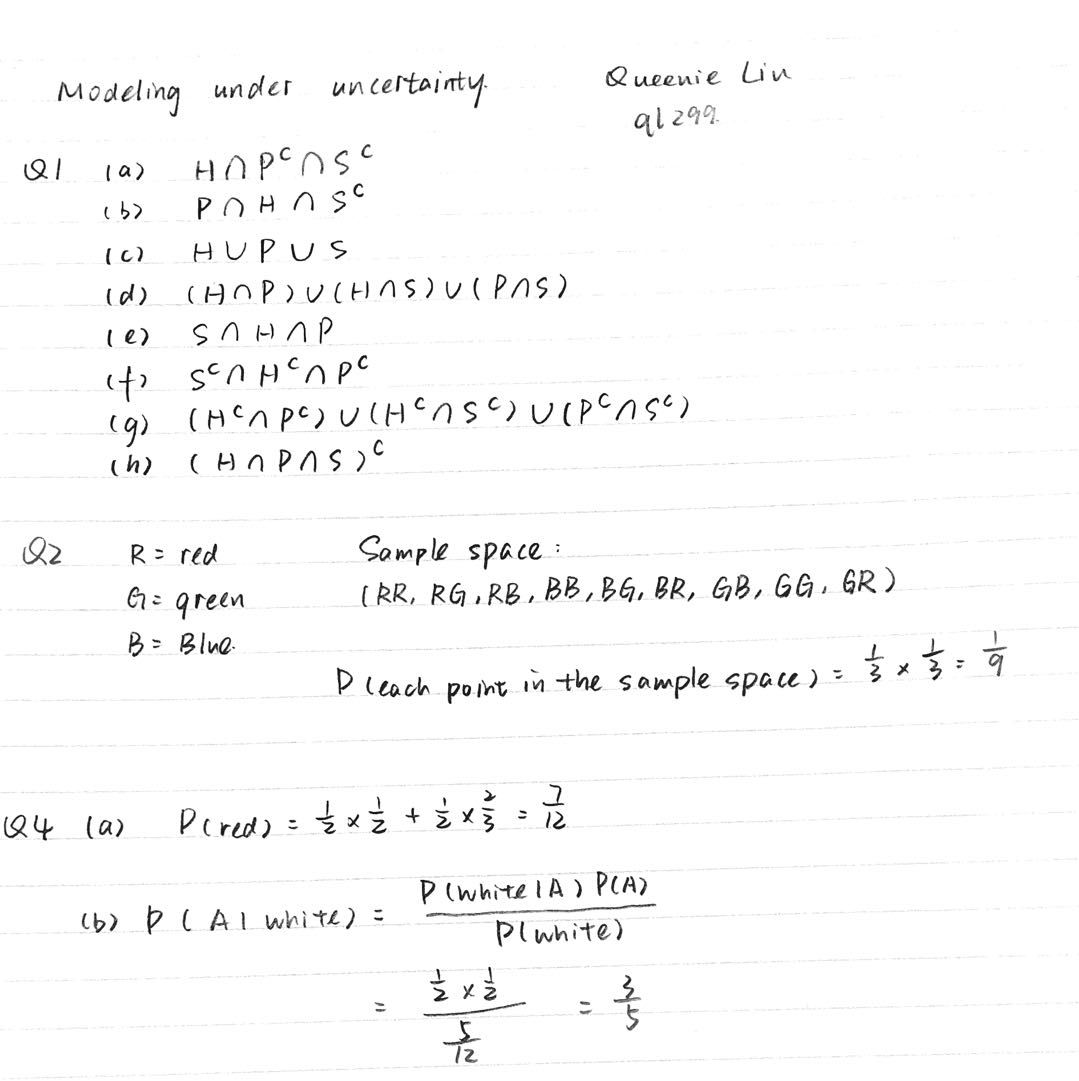 Modeling under uncertainty. Queenie Lin
ql299.
Q1 (a) H∩Pᶜ∩Sᶜ
(b) P∩H∩Sᶜ
(c) H∪P∪S
(d) (H∩P)∪(H∩S)∪(P∩S)
(e) S∩H∩P
(f) Sᶜ∩Hᶜ∩Pᶜ
(g) (Hᶜ∩Pᶜ)∪(Hᶜ∩Sᶜ)∪(Pᶜ∩Sᶜ)
(h) (H∩P∩S)ᶜ
Q2 R = red Sample space :
G = green (RR, RG, RB, BB, BG, BR, GB, GG, GR)
B = Blue.
P (each point in the sample space) = 1/3 × 1/3 = 1/9
Q4 (a) P(red) = 1/2 × 1/2 + 1/2 × 2/3 = 7/12
(b) P(A|white) = P(white|A) P(A) / P(white)
= (1/2 × 1/2) / (5/12) = 3/5